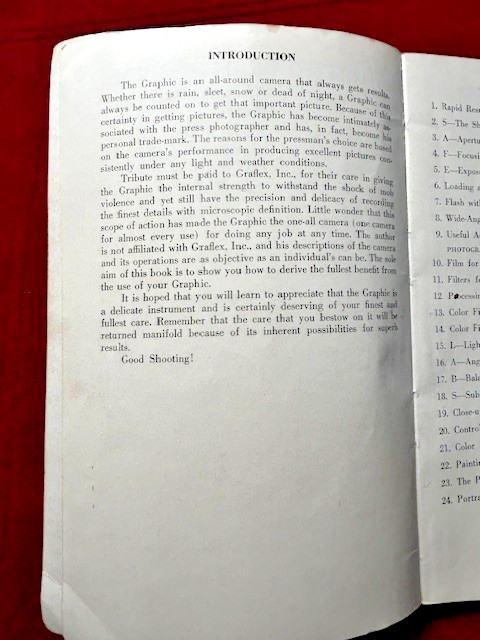 INTRODUCTION
The Graphic is an all-around camera that always gets results.
Whether there is rain, sleet, snow or dead of night, a Graphic can
always be counted on to get that important picture. Because of this
certainty in getting pictures, the Graphic has become intimately as-
sociated with the press photographer and has, in fact, become his
personal trade-mark. The reasons for the pressman's choice are based
on the camera's performance in producing excellent pictures con-
sistently under any light and weather conditions.
Tribute must be paid to Graflex, Inc., for their care in giving
the Graphic the internal strength to withstand the shock of mob
violence and yet still have the precision and delicacy of recording
the finest details with microscopic definition. Little wonder that this
scope of action has made the Graphic the one-all camera (one camera
for almost every use) for doing any job at any time. The author
is not affiliated with Graflex, Inc., and his descriptions of the camera
and its operations are as objective as an individual's can be. The sole
aim of this book is to show you how to derive the fullest benefit from
the use of your Graphic.
It is hoped that you will learn to appreciate that the Graphic is
a delicate instrument and is certainly deserving of your finest and
fullest care. Remember that the care that you bestow on it will be
returned manifold because of its inherent possibilities for superb
results.
Good Shooting!
1. Rapid Res
2. S—The Sh
3. A—Apertu
4. F—Focusi
5. E—Expos
6. Loading a
7. Flash wit
8. Wide-Ang
9. Useful A
PHOTOGR
10. Film for
11. Filters f
12. Processin
13. Color Fi
14. Color Fi
15. L—Ligh
16. A—Ang
17. B—Bala
18. S—Sub
19. Close-u
20. Control
21. Color
22. Paintin
23. The P
24. Portra